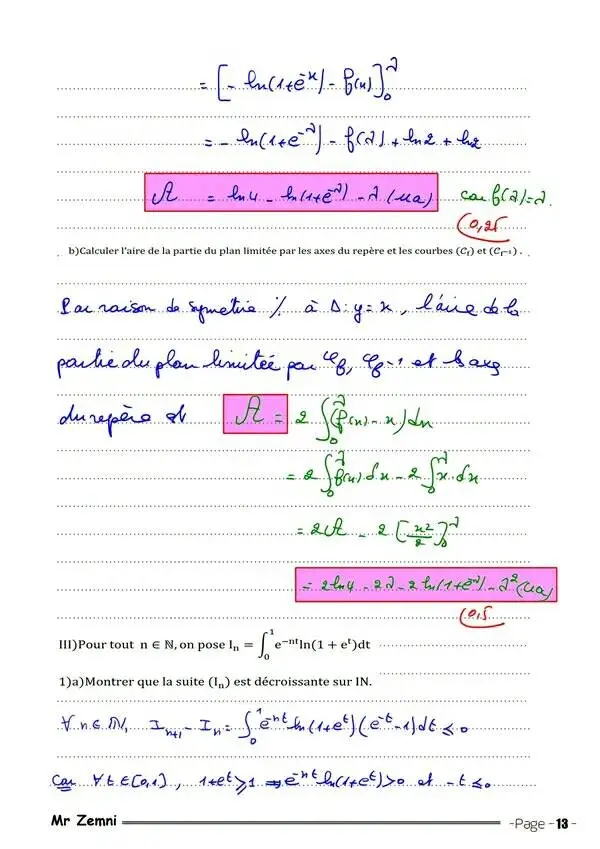 = [- ln(1+e^{-x}) - f(x)]_0^λ
= - ln(1+e^{-λ}) - f(λ) + ln2 + ln2
A = ln4 - ln(1+e^{-λ}) - λ (ua) car f(λ)=λ.
(0,25
b)Calculer l'aire de la partie du plan limitée par les axes du repère et les courbes (C_f) et (C_{f^{-1}}) .
Par raison de symetrie % à Δ: y=x, l'aire de la
partie du plan limitée par 𝒞f, 𝒞f⁻¹ et les axes
du repère est A = 2 ∫_0^λ (f(x) - x) dx
= 2 ∫_0^λ f(x) dx - 2 ∫_0^λ x. dx
= 2A - 2 [x²/2]_0^λ
= 2ln4 - 2λ - 2ln(1+e^{-λ}) - λ² (ua)
(0,5
III)Pour tout n ∈ ℕ, on pose I_n = ∫_0^1 e^{-nt} ln(1 + e^t)dt
1)a)Montrer que la suite (I_n) est décroissante sur IN.
∀ n ∈ IN, I_{n+1} - I_n = ∫_0^1 e^{-nt} ln(1+e^t)(e^{-t}-1)dt ≤ 0
Car ∀ t ∈ [0,1], 1+e^t ≥ 1 ⇒ e^{-nt} ln(1+e^t) > 0 et -t ≤ 0
Mr Zemni -Page -13 -